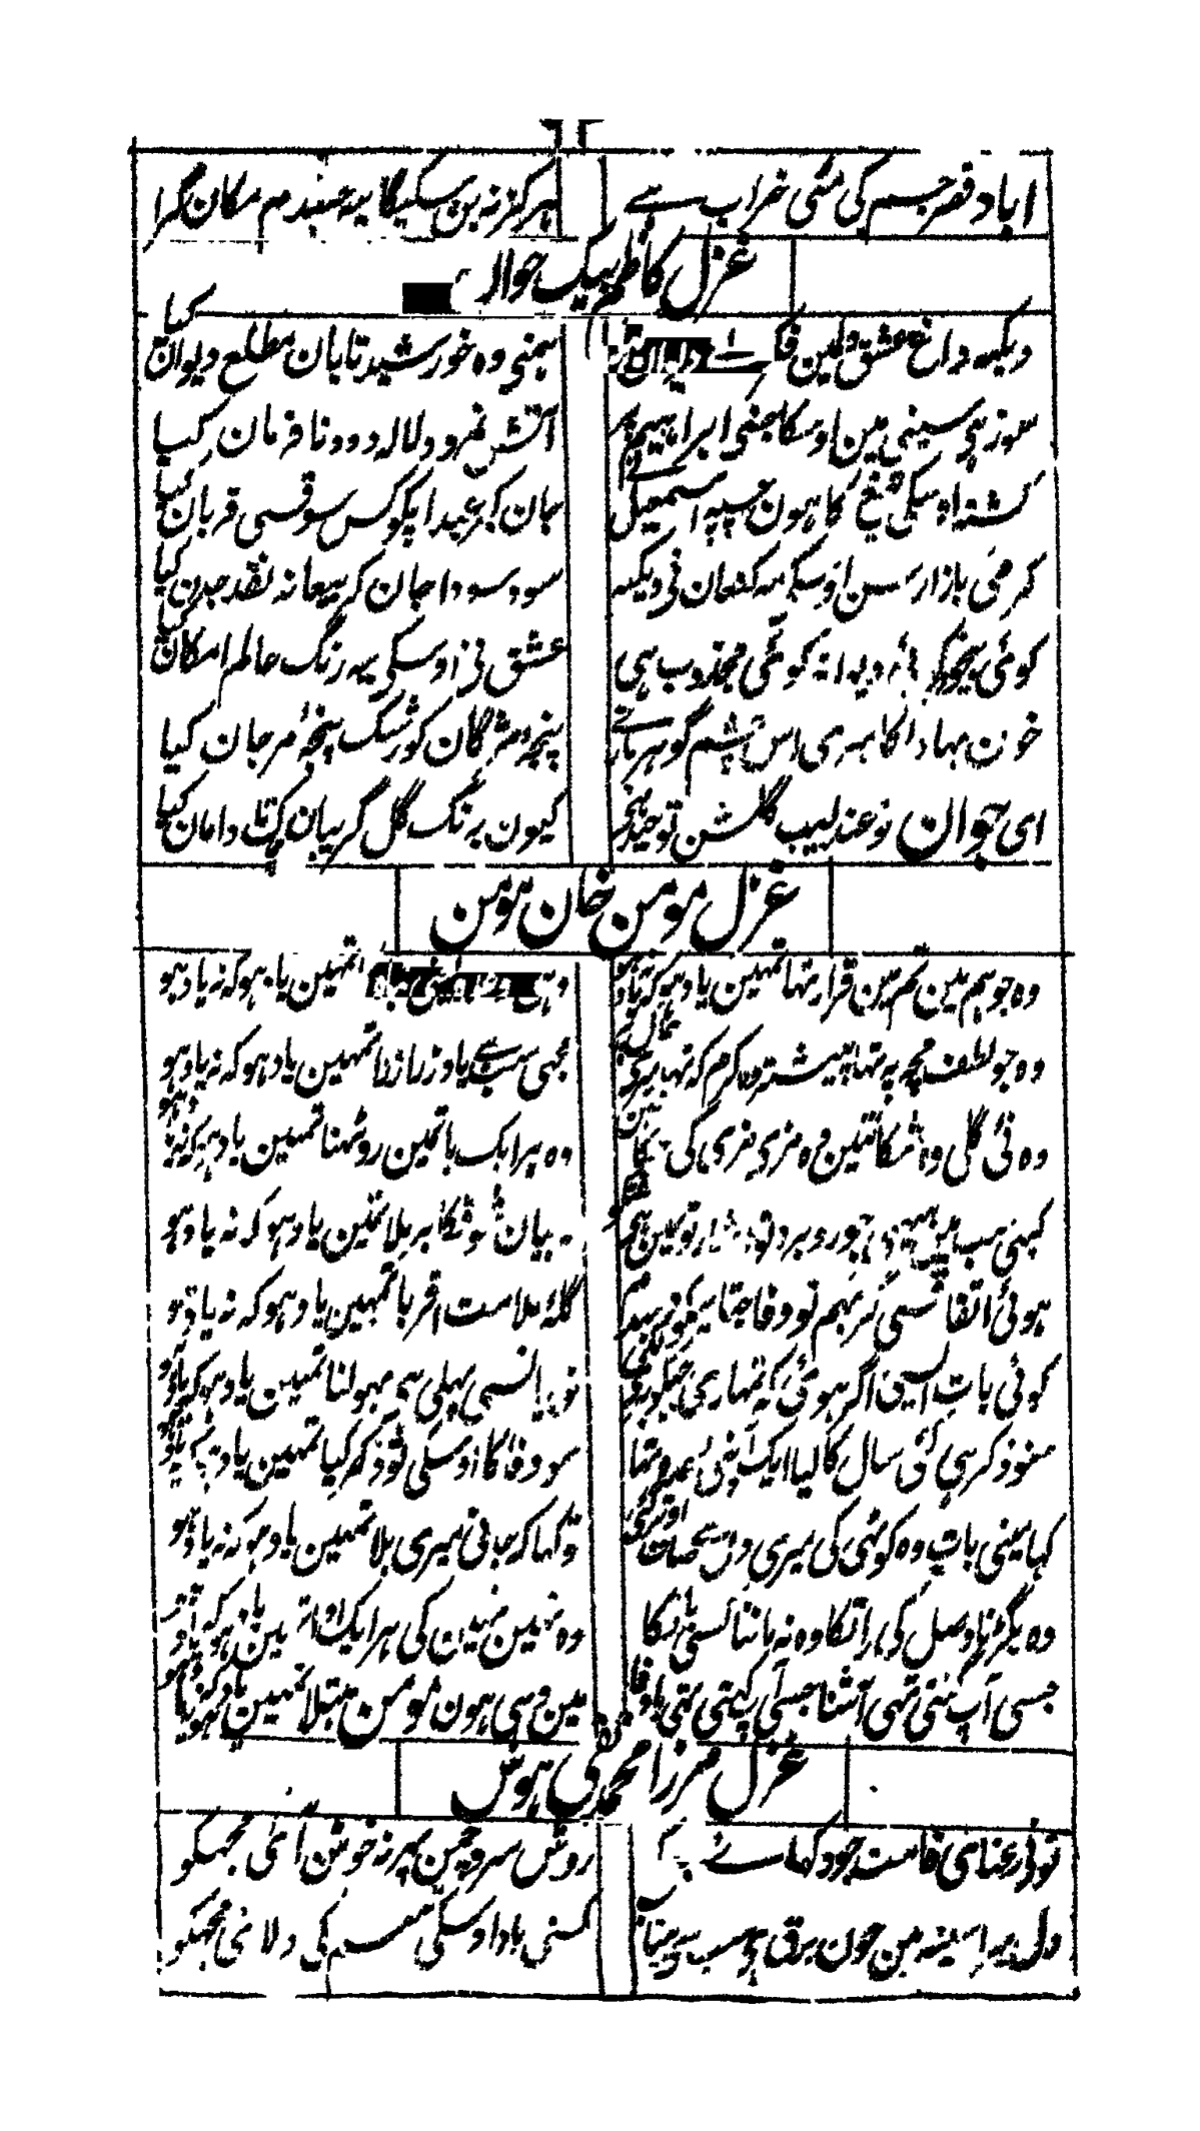 اباد قصر جسم کی مٹی خراب ہے ہرگز نہ بن سکیگا یہ منہدم مکان گرا
غزل کاظم بیگ جوان
دیکہہ داغ عشق دلمین ہمنی وہ خورشید تابان مطلع دیوان کیا
سوز ہی سینی مین اوسکا جنی ابراہیم پر آتش نمرود لالہ دود نافرمان کیا
کشتہ اوسکی تیغ کا ہون جسپہ اسمعیل نے جان کر عید اپکو کس سوقسی قربان کیا
گرمی بازار حسن اوسکی مہ کنعان نی دیکہہ سود سودا جان کر بیعانہ نقد جان کیا
کوئی بیخود کوئی دیوانہ کوئی مجذوب ہی عشق نی اوسکی یہہ رنگ عالم امکان کیا
خون بہا دلکا ہمری اس چشم گوہر بار نے پنجہ مژگان کو رشک پنجہ مرجان کیا
ای جوان تو عندلیب گلشن توحید ہی کیون برنگ گل گریبان تا دامان کیا
غزل مومن خان مومن
وہ جو ہم مین تم مین قرار تہا تمہین یاد ہو کہ نہ یاد ہو وہی تمہین یاد ہو کہ نہ یاد ہو
وہ جو لطف مجہہ پہ تہا پیشتر وہ کرم کہ تہا میری حال پر مجہی سب ہے یاد ذرا ذرا تمہین یاد ہو کہ نہ یاد ہو
وہ نئی گلی وہ شکائتین وہ مزی مزی کی حکایتین وہ ہر ایک باتمین روٹہنا تمہین یاد ہو کہ نہ یاد ہو
کبہی سب مین جو روبرو تو اشارتو مین ہی گفتگو بیان شوق کا برملا تمہین یاد ہو کہ نہ یاد ہو
ہوئی اتفاق سی گر بہم تو وفا جتانیکو دمبدم گلہ ملامت اقربا تمہین یاد ہو کہ نہ یاد ہو
کوئی بات ایسی اگر ہوئی کہ تمہاری جیکو بری لگی تو بیانسی پہلی ہی بہولنا تمہین یاد ہو کہ نہ یاد ہو
سنو ذکر ہی کئی سال کا کیا ایک آپنی وعدہ تہا سو وفا کا اوسکی تو ذکر کیا تمہین یاد ہو کہ نہ یاد ہو
کہا مینی بات وہ کوٹہی کی میری دلسی صاف اوتر گئی تو کہا کہ جانی میری بلا تمہین یاد ہو کہ نہ یاد ہو
وہ بگڑنا وصل کی راتکا وہ نہ ماننا کسی باتکا وہ نہین نہین کی ہر ایک ادا تمہین یاد ہو کہ نہ یاد ہو
جسی آپ گنتی تہی آشنا جسی آپ کہتی تہی باوفا مین وہی ہون مومن مبتلا تمہین یاد ہو کہ نہ یاد ہو
غزل مرزا محمد تقی ہوس
تونی رعنائی قامت جو دکہائے روش سرو چمن پہر نہ خوش آئی مجہکو
دل سینہ مین جون برق ہی سب بیتاب کسنی یاد اوسکی تبسم کی دلائی مجہکو